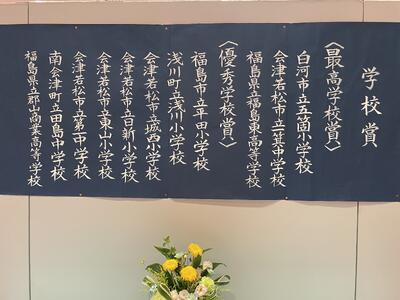 学校賞
〈最高学校賞〉
白河市立五箇小学校
会津若松市立一箕中学校
福島県立福島東高等学校
〈優秀学校賞〉
福島市立平田小学校
浅川町立浅川小学校
会津若松市立城西小学校
会津若松市立日新小学校
会津若松市立東山小学校
会津若松市立第二中学校
南会津町立田島中学校
福島県立郡山商業高等学校